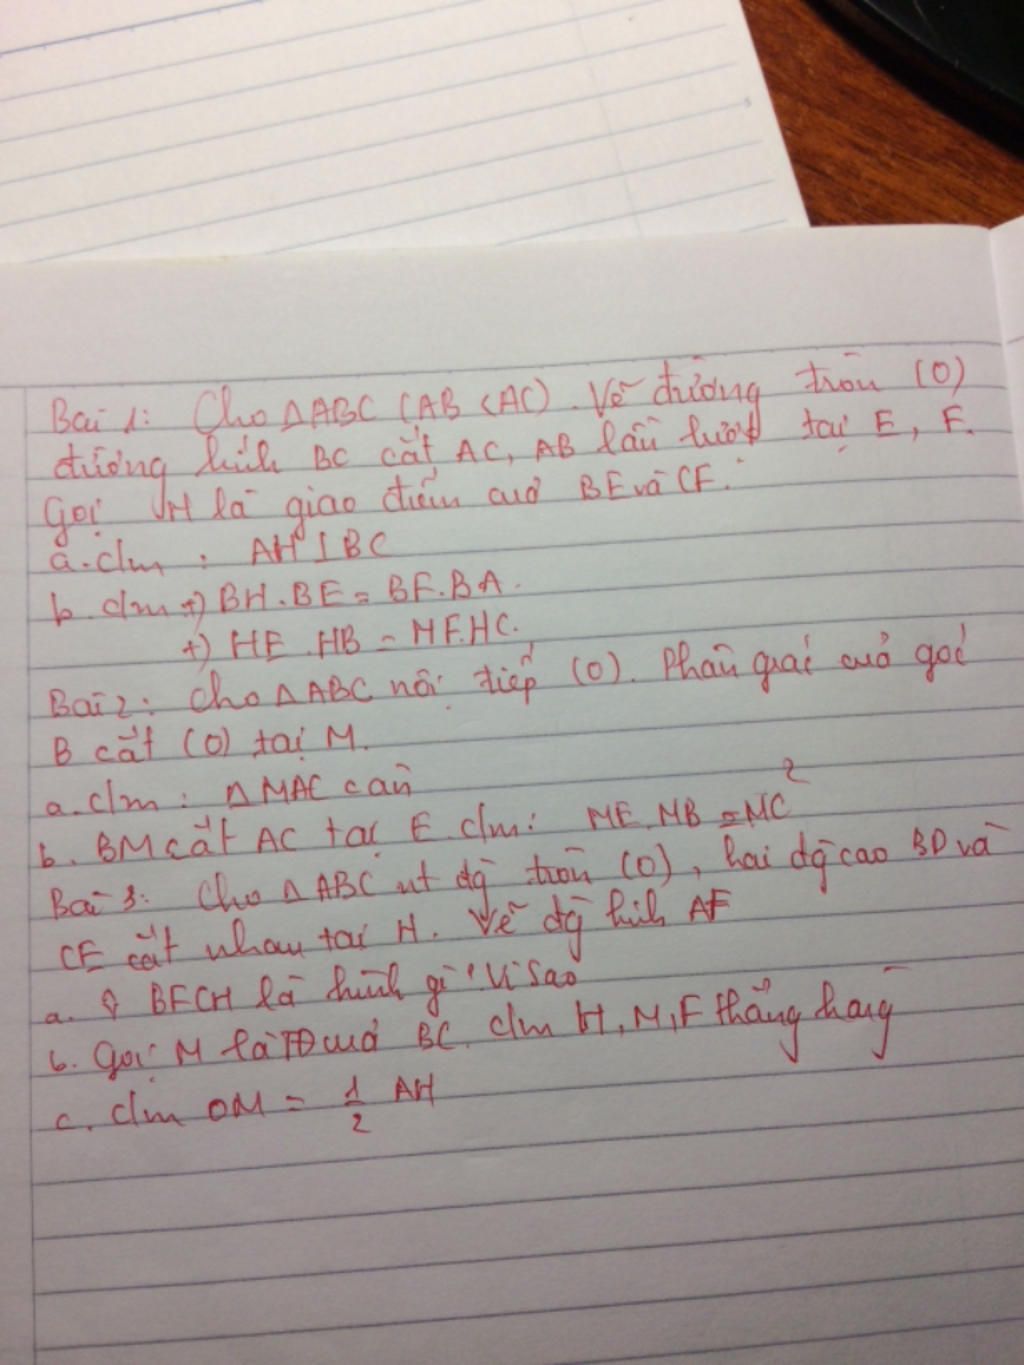 Bài 1: Cho △ABC (AB < AC). Vẽ đường tròn (O)
đường kính BC cắt AC, AB lần lượt tại E, F.
Gọi H là giao điểm của BE và CF.
a. c/m : AH ⊥ BC
b. c/m +) BH.BE = BF.BA.
+) HE.HB = HF.HC.
Bài 2: Cho △ABC nội tiếp (O). Phân giác của góc
B cắt (O) tại M.
a. c/m : △MAC cân
b. BM cắt AC tại E. c/m: ME.MB = MC²
Bài 3: Cho △ABC nt đg tròn (O), hai đg cao BD và
CE cắt nhau tại H. Vẽ đg kính AF
a. ◊ BFCH là hình gì? Vì sao
b. Gọi M là TĐ của BC. c/m H, M, F thẳng hàng
c. c/m OM = 1/2 AH